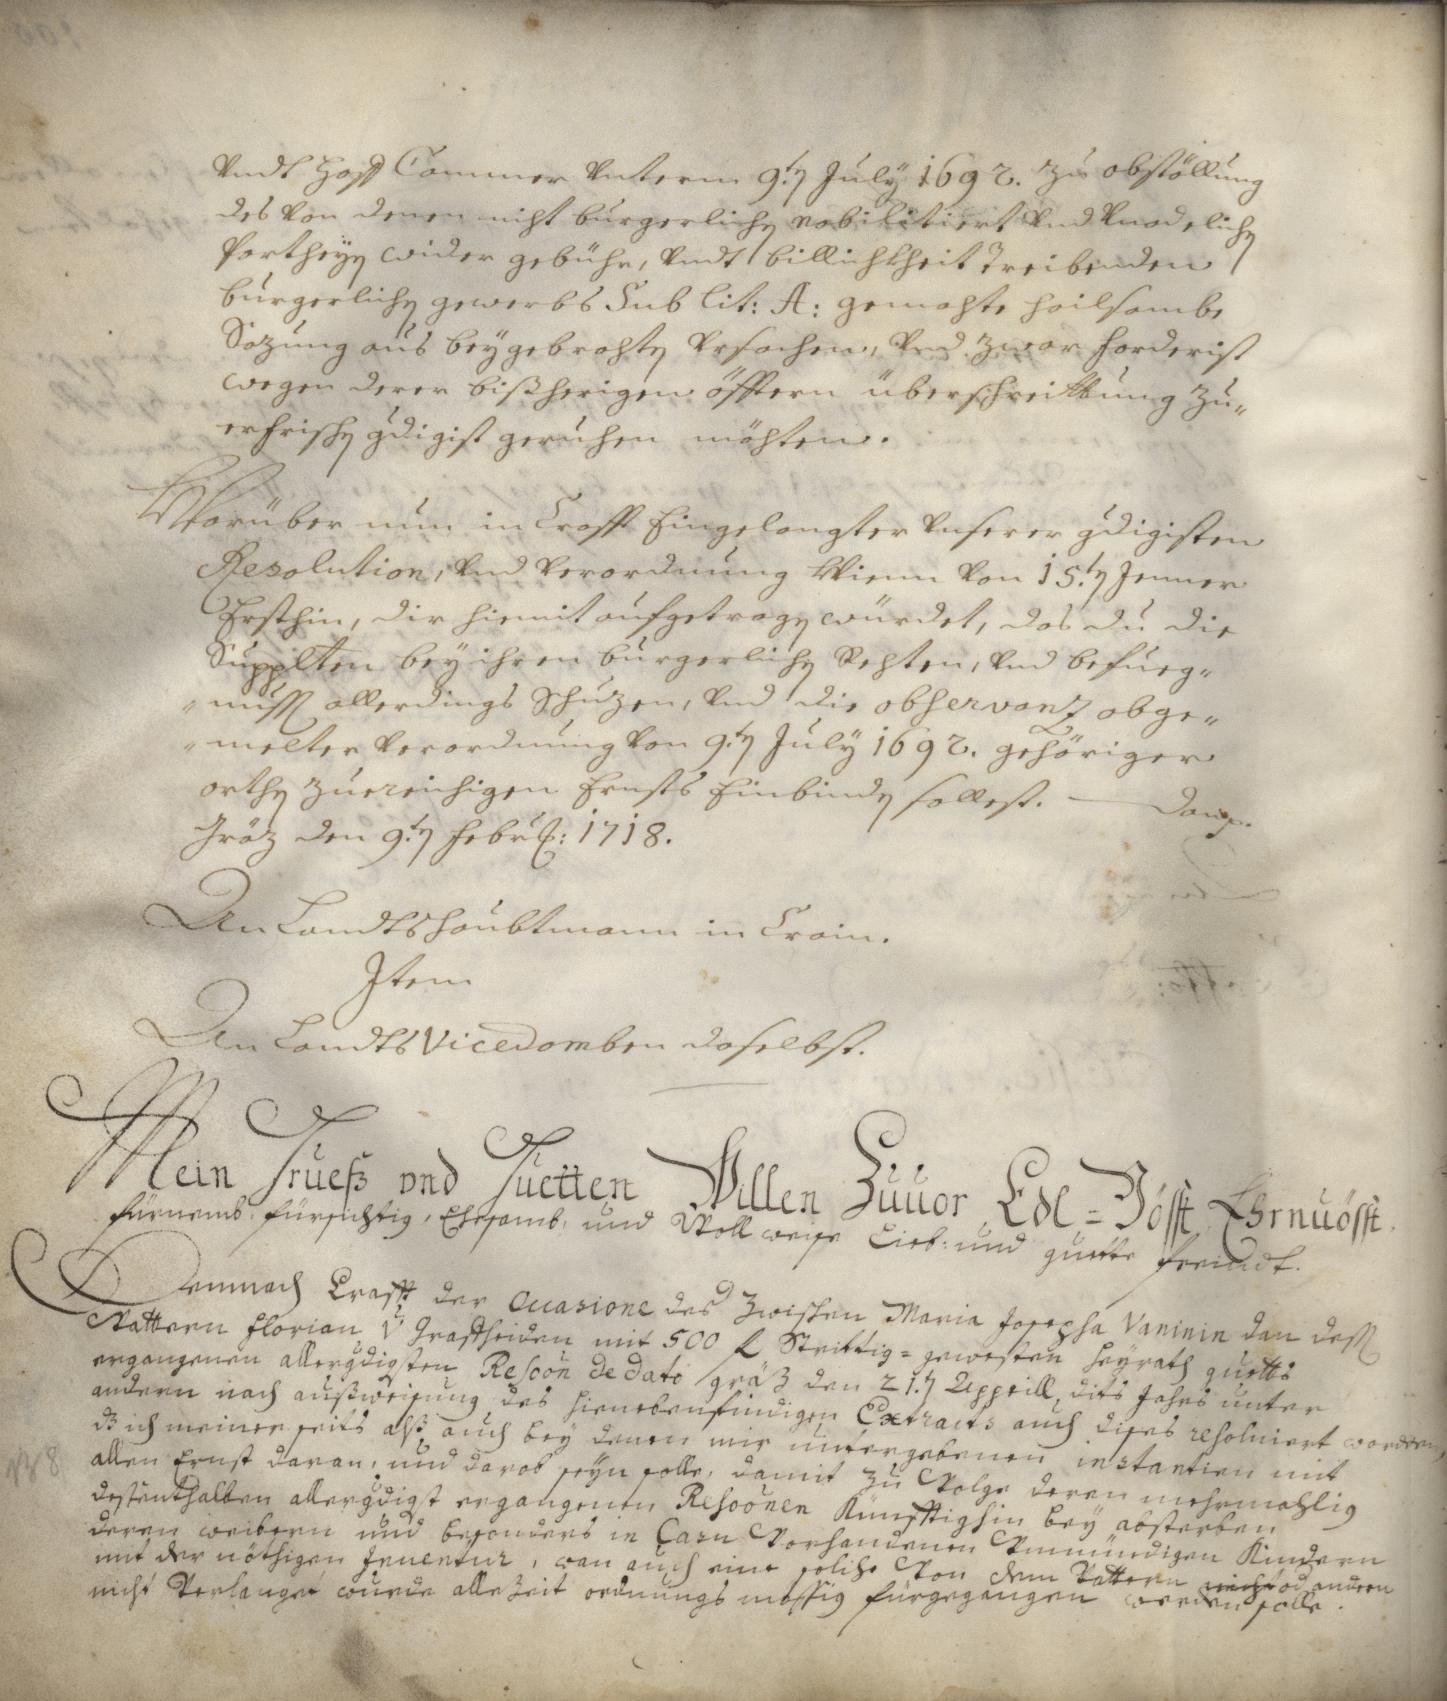 Vndt Hoff Cammer Vnterm 9.ten July 1692. zu obstöllung
des von denen nicht burgerlichen nobilitiert Vnd Vnadelichen
Partheyen wider gebühr, Vndt billichkheit Treibenden
burgerlichen gewerbs Sub lit: A: gemachte hailsambe
Sazung aus beygebrachten Vrsachen, Vnd zwar forderist
wegen derer bißherigen öfftern überschreittung zu„
erfrischen gdigist geruhen möchten.
Worüber nun in Crafft Eingelangter Vnserer gdigisten
Resolution, Vnd Verordnung Wienn Von 15.ten Jenner
Ersthin, dir hiemit aufgetragen würdet, das du die
Supplten bey ihren burgerlichen Rechten, Vnd befueg„
„nuß allerdings Schuzen, Vnd die obserVanz obge„
„melter Verordnung Von 9.ten July 1692. gehöriger
orthen zuereichigen Ernsts Einbinden sollest.
Gräz den 9.ten Febru: 1718.
An Landtshaubtmann in Crain.
Item
An Landts Vicedomben daselbst.
Mein Grueß vnd Guetten Willen Zuuor Edl = Vösst Ehrnuösst.
fürnemb, fürsichtig, Ehrsamb, und Woll weise Lieb: und guette freundt.
Demnach Crafft der occasione des Zwischen Maria Josepha Vaninin dan dess
Vattern Florian V Graffheiden mit 500 fl Strittig = gewesten heyrath guetts
ergangenen allergdigsten Resoon de dato gräz den 21.ten Apprill dits Jahrs unter
andern nach außweisung des hieneben findigen Extracts auch dises resoluiert worden,
dz ich meiner seits alß auch bey denen mir untergebenen instantien mit
allen Ernst daran, und darob seyn solle, damit zu Volge deren mehrmahlig
dessenthalben allergdigst ergangenen Resoonen Künfftighin bey absterben
deren weibern und besonders in Casu Vorhandenen Vnmündigen Kindern
mit der nöthigen Inuentur, wan auch eine solche Von dem Vattern od andern
nicht Verlanget wurde allezeit ordnungs mässig fürgegangen werden solle.